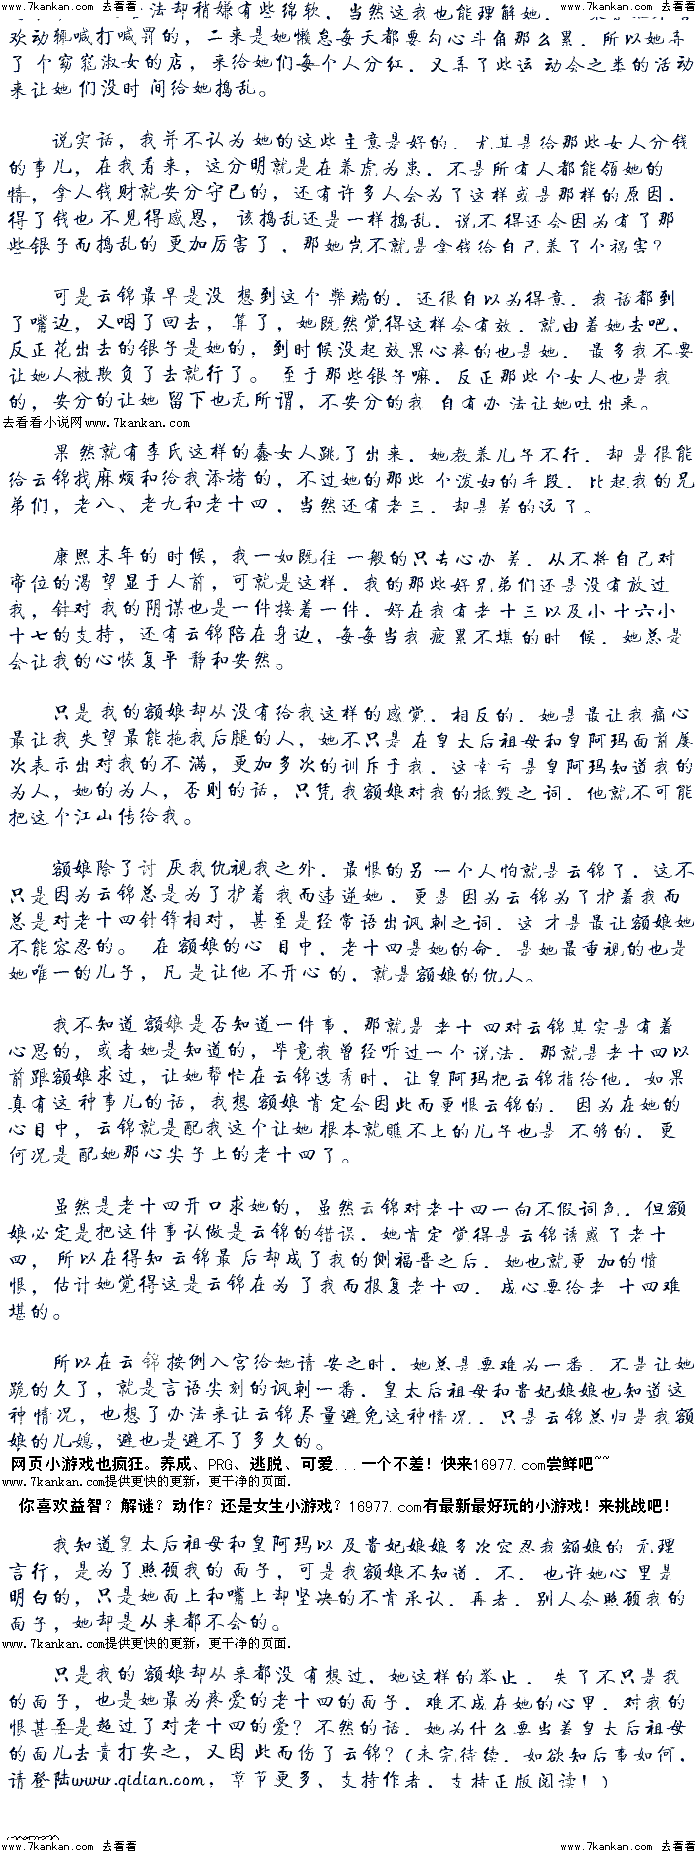 www.7kankan.com 去看看 www.7kankan.com 去看看
法却稍嫌有些绵软．当然这我也能理解她．
欢动辄喊打喊罚的，二来是她懒怠每天都要勾心斗角那么累．所以她弄
了 个窈窕淑女的店，来给她们每个人分红．又弄了些运 动会之类的活动
来让她 们没时 间给她捣乱。
说实话，我并不认为 她的这些主意是好的．尤其是给那些女人分钱
的事儿，在我看来，这分明就是在养虎为患．不是所有人都能领她的
情，拿人钱财就安分守己的，还有许多人会为了这样或是那样的原因．
得了钱也 不见得感恩， 该捣乱还是一样捣乱．说不 得还会因为有了那
些银子而捣乱的 更加厉害了 ．那她岂不就是拿钱给自己养了个祸害？
可是云锦最早是没 想到这个 弊端的．还很自以为得意．我 话都到
了嘴边，又咽了回去， 算了，她既然觉得这样会有效．就由着她去吧．
反正花出去的银子是她的，到时候没起 效果心疼的也是她． 最多我不要
让她人被欺负了去就行了。 至于那些银子嘛．反正那些个女人也是我
的，安分的让她 留下也无所谓，不安分的我 自有办 法让她吐出来。
去看看小说网www.7kankan.com
果 然就有李氏这样的蠢女人跳了出来．她教养儿子不行．却 是很能
给云锦找麻烦和给我添堵 的，不过她的那些 个泼妇的手段．比起我的兄
弟们，老八、老九和老十四 ．当然还有老三．却是差的远了。
康熙末年的 时候，我一如既往 一般的只去心办 差．从不将自己对
帝位的渴 望显于人前，可就是这样．我的那些好兄弟们还是没有放过
我，针对 我的阴谋也是一件接着一件．好在我有老 十三以及小 十六小
十七的支持，还有云锦陪在身边，每每当我 疲累不堪 的时 候．她总是
会让我的心恢复平 静和安然。
只是 我的额娘却从没有给我这样的感觉．相反的．她是 最让我痛心
最让我 失望最能拖我后腿的人，她不只是 在皇太后祖母和皇阿玛面前屡
次表示出对我的不 满，更加多次的训斥于我．这幸亏 是皇阿玛知道我的
为人，她的为人，否则的话，只凭 我额娘对我的抵毁之 词．他就不可能
把这个江山传给我。
额娘除了讨 厌我仇视我之外．最恨的另 一个人怕就是云锦了．这不
只是因为云锦总是为了护着 我而违逆她．更是 因为云 锦为了护着我而
总是对老十四针锋相对，甚至是经常语出讽刺之词．这 才是最让额娘她
不能容忍的。 在 额娘的心 目中．老十四是她的命．是她最重视的也是
她唯一的儿子，凡 是让他 不开心 的．就是额娘的仇人。
我不知道 额娘是否知道一件事．那就是 老十 四对云锦其实是有着
心思的，或者她是知道的，毕竟我曾经听过一个说法．那就是老十四以
前跟额娘求过，让她帮忙在云锦选 秀时．让皇阿玛把云锦指给他．如果
真有这 种事儿的话，我想 额娘 肯定会因此而更恨云锦的． 因为在她的
心目中，云锦就是配我这个让她 根本就瞧不上的儿子也是 不够的．更
何况是 配她那心尖子上的老十四了。
虽然是老十四开口求她的，虽然云锦对老十四一向不假词色．但额
娘必定是把这件事认做是云锦的错误．她肯定 觉得是云锦诱惑了老十
四， 所以在得知 云锦最 后却成了我的侧福晋之后．她也就更 加的愤
恨，估计她觉得这是云锦在为 了我而报复老十四． 成心要给老 十四难
堪的。
所以在云 锦 按例入宫给她请 安之时．她总是要难为一番．不是让她
跪的久了，就是言语尖刻的讽刺一番．皇太后祖母和贵妃娘娘也知道这
种 情况，也想了办法来让云锦尽量避免这种情况．．只是云锦总归是我额
娘的儿媳，避也是避不了多久的。
网页小游戏也疯狂。养成、PRG、逃脱、可爱...一个不差！快来16977.com尝鲜吧~~
www.7kankan.com提供更快的更新，更干净的页面．
你喜欢益智？解谜？动作？还是女生小游戏？16977.com有最新最好玩的小游戏！来挑战吧！
我知道皇太后祖母和皇阿玛以及贵妃娘娘多次容忍我额娘的 无理
言行，是为了照顾我的 面子，可是我额娘不知道．不．也许她心里是
明白的，只是她面上和嘴上却坚决的不肯承认．再者．别人会照顾我的
面子，她却是从来都不会的。
www.7kankan.com提供更快的更新，更干净的页面．
只是我的 额娘却从来都没 有想过．她这样的举止． 失了不只是我
的面子，也是她最为疼爱的老十四的面子．难不成在她的心里．对我的
恨甚至是超过了对老十四的爱？不然的话．她为什么要当着皇太后祖母
的面儿去责打安之，又因 此而伤了云锦？（未完待续．如欲知后事如何，
请登陆www.qidian.com，章节更多、支持作者．支持正版阅读！）
www.7kankan.com 去看看 www.7kankan.com 去看看